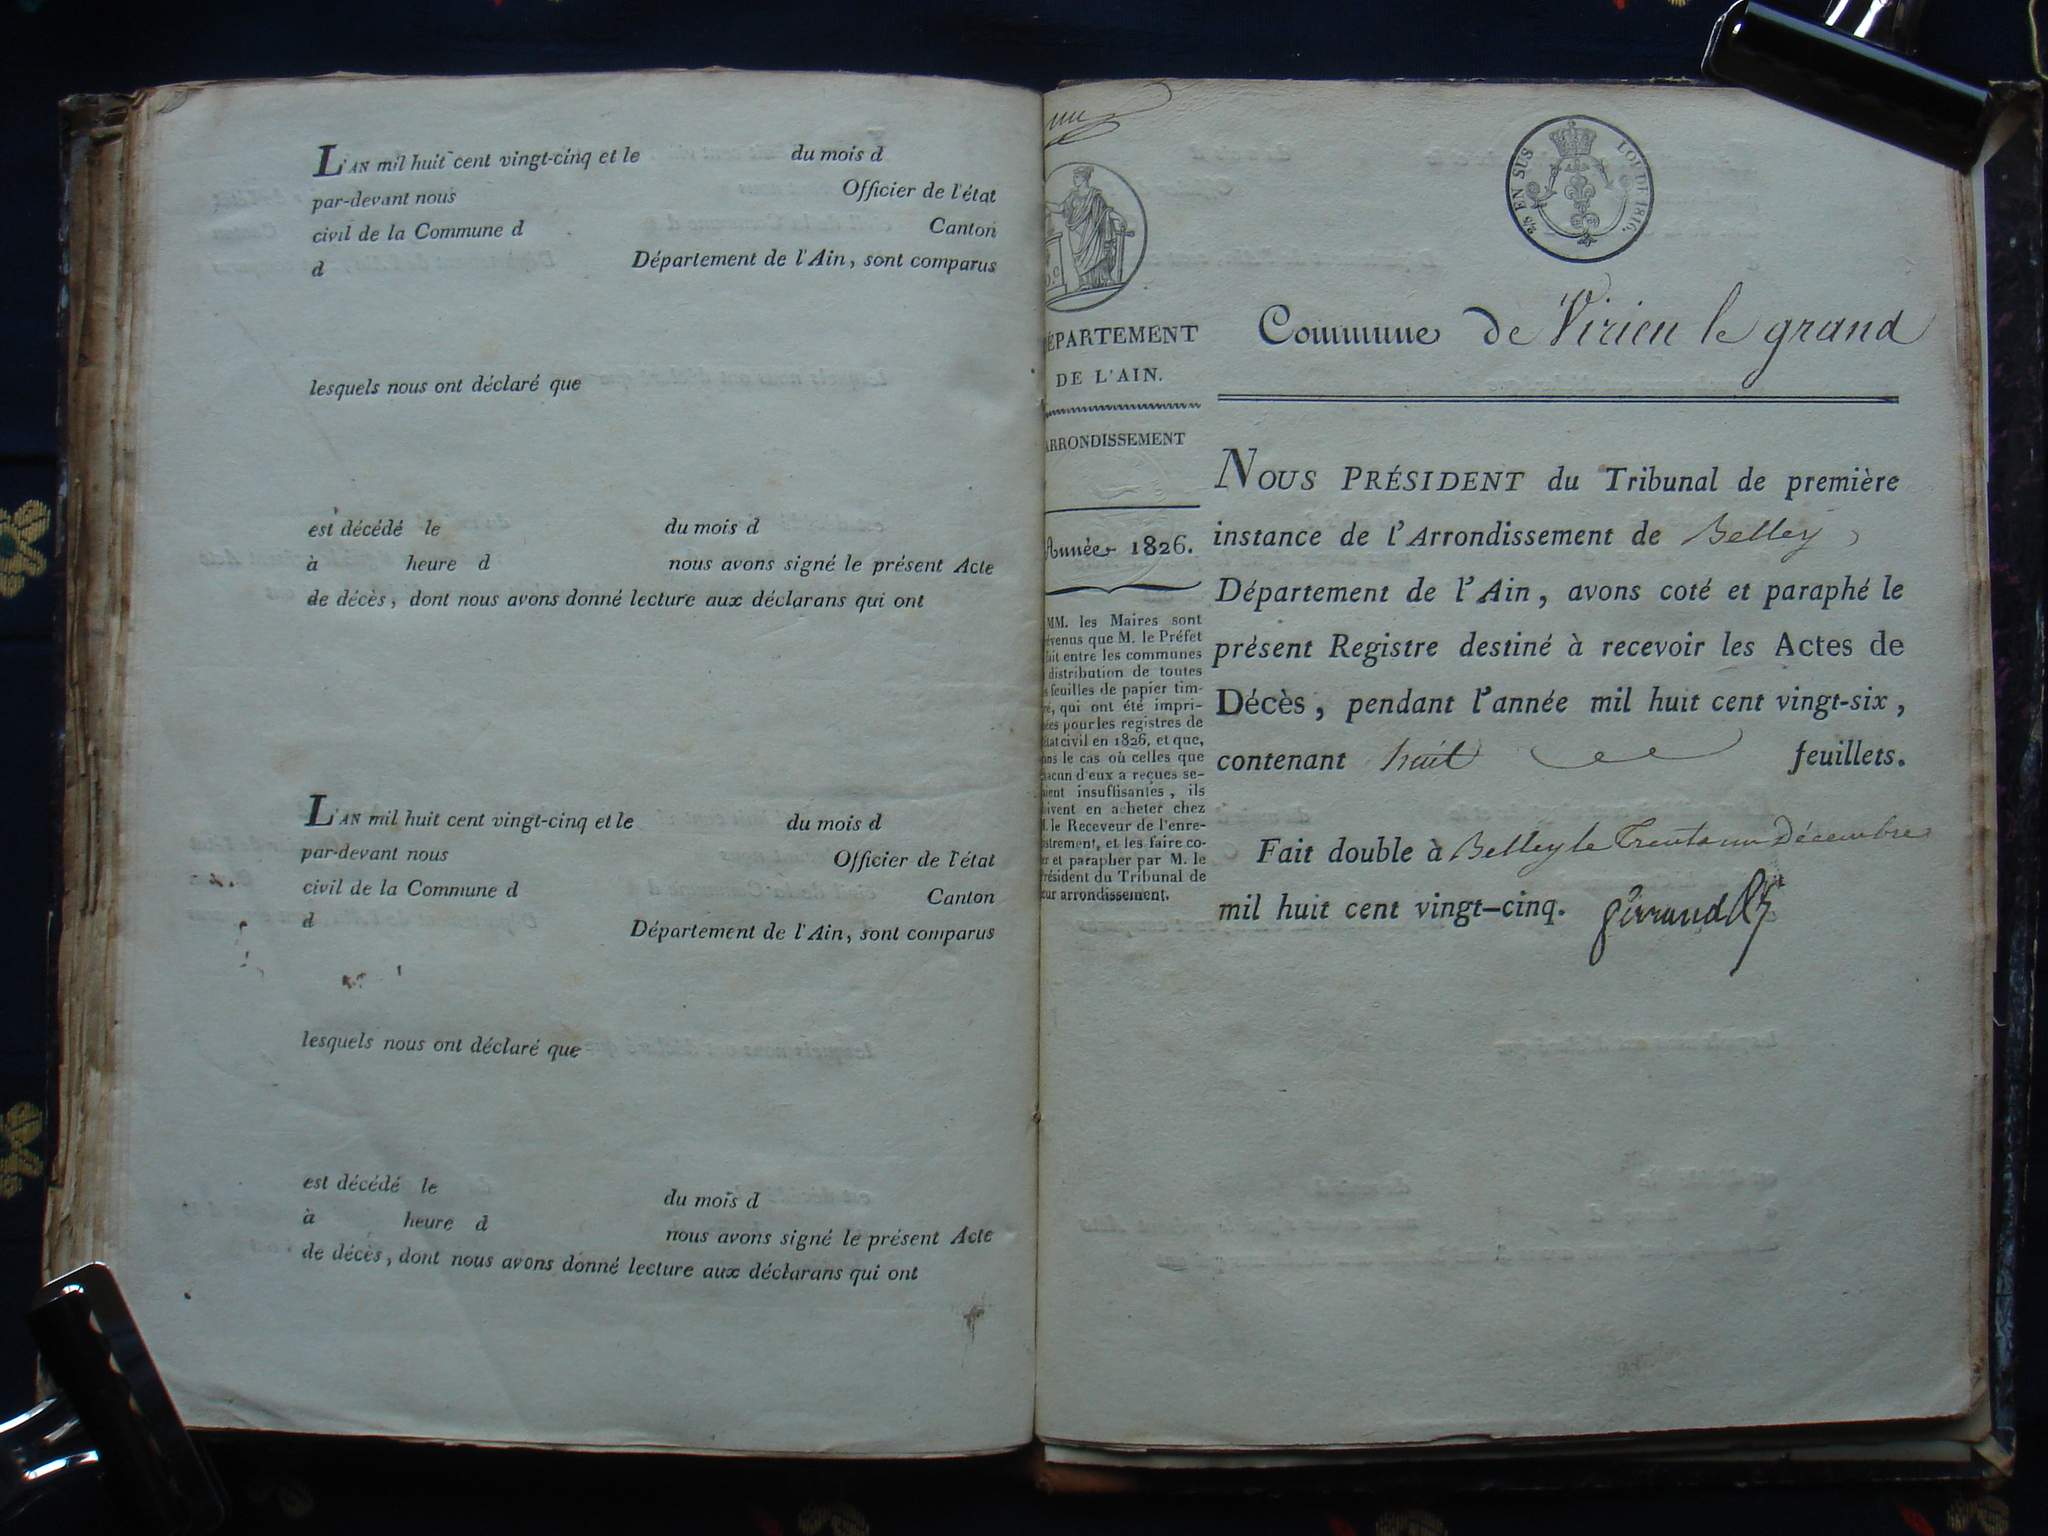 L'AN mil huit cent vingt-cinq et le du mois d
par-devant nous Officier de l'état
civil de la Commune d Canton
d Département de l'Ain, sont comparus
lesquels nous ont déclaré que
est décédé le du mois d
à heure d nous avons signé le présent Acte
de décès, dont nous avons donné lecture aux déclarans qui ont
L'AN mil huit cent vingt-cinq et le du mois d
par-devant nous Officier de l'état
civil de la Commune d Canton
d Département de l'Ain, sont comparus
lesquels nous ont déclaré que
est décédé le du mois d
à heure d nous avons signé le présent Acte
de décès, dont nous avons donné lecture aux déclarans qui ont
EN SUS LOI DE 1816.
ÉPARTEMENT
DE L'AIN.
ARRONDISSEMENT
Année 1826.
MM. les Maires sont
évenus que M. le Préfet
fait entre les communes
distribution de toutes
feuilles de papier tim-
é, qui ont été impri-
ées pour les registres de
état civil en 1826, et que,
ns le cas où celles que
acun d'eux a reçues se-
ient insuffisantes, ils
ivent en acheter chez
M. le Receveur de l'enre-
istrement, et les faire co-
er et parapher par M. le
résident du Tribunal de
eur arrondissement.
Commune de Virieu le grand
NOUS PRÉSIDENT du Tribunal de première
instance de l'Arrondissement de Belley,
Département de l'Ain, avons coté et paraphé le
présent Registre destiné à recevoir les Actes de
Décès, pendant l'année mil huit cent vingt-six,
contenant huit feuillets.
Fait double à Belley le Trente un Décembre
mil huit cent vingt-cinq.